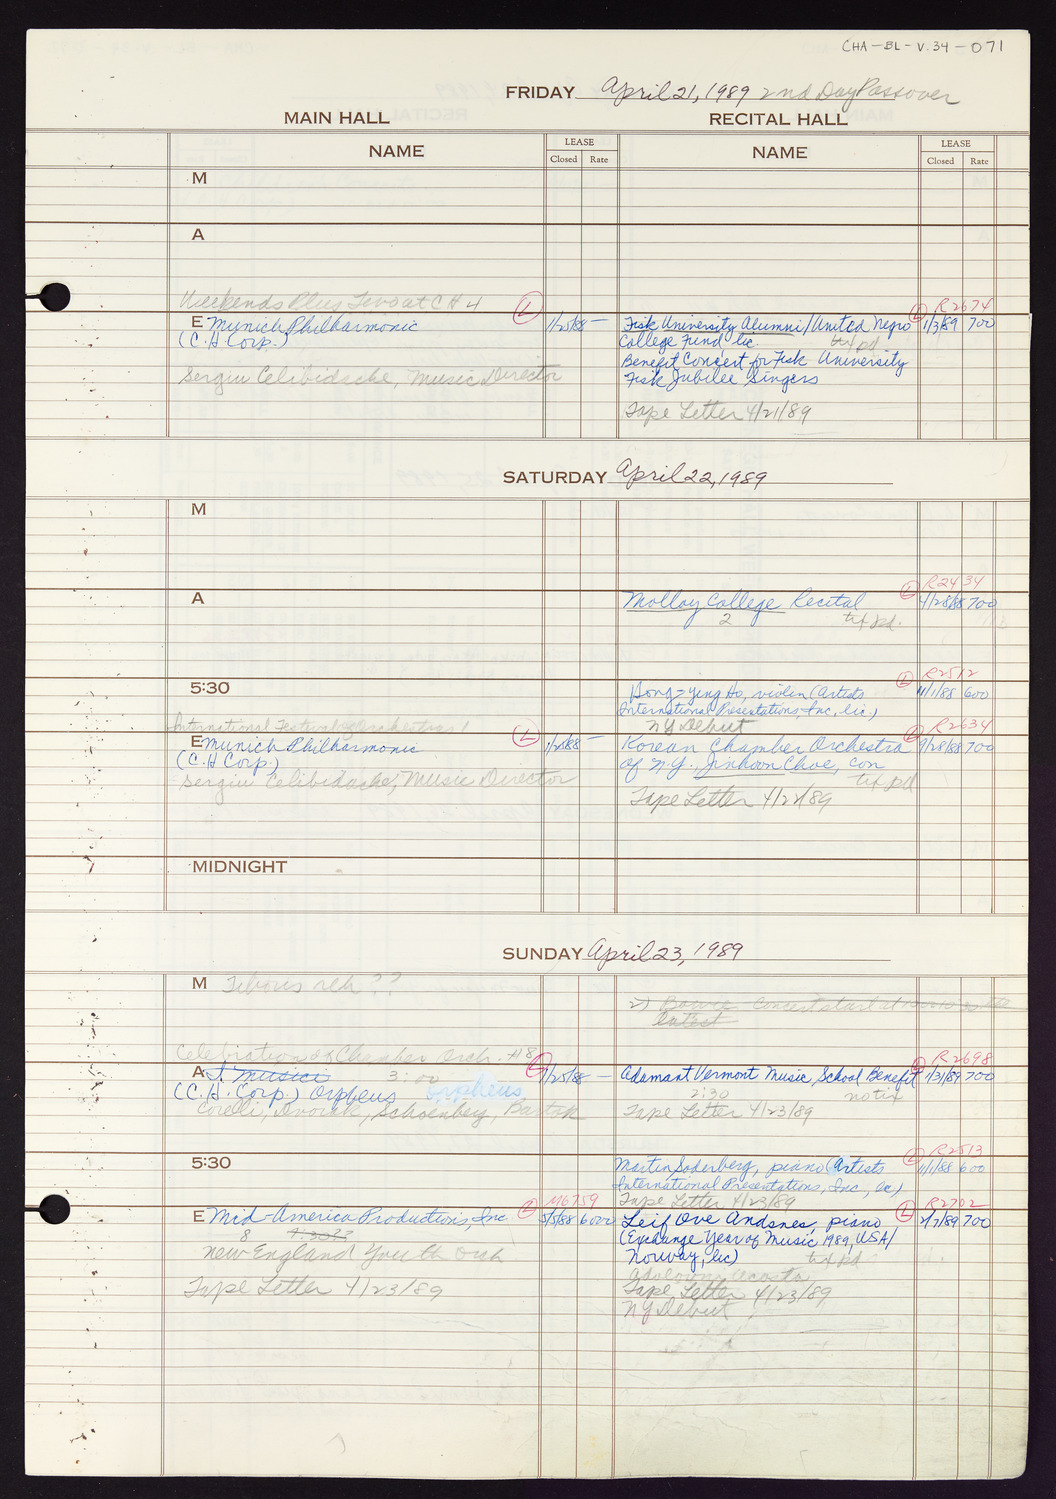 CHA-BL-V.34-071
FRIDAY April 21, 1989 2nd Day Passover
MAIN HALL
RECITAL HALL
NAME
LEASE
Closed Rate
NAME
LEASE
Closed Rate
M
A
Weekends Plus
L
E Munich Philharmonic
1/25/88 —
(C.H Corp.)
Sergiu Celibidache, Music Director
R2674
L
Fisk University Alumni/United Negro
1/3/89 700
College Fund, lic.
tix pd.
Benefit Concert for Fisk University
Fisk Jubilee Singers
Tape Letter 4/21/89
SATURDAY April 22, 1989
M
A
R2434
L
Molloy College Recital
4/28/88 700
2
tix pd.
5:30
R2512
L
Hong-Ying Ho, violin (Artists
11/1/88 600
International Presentations, Inc, lic.)
NY Debut
International Festival of Orchestras I
L
E Munich Philharmonic
1/25/88 —
(C.H Corp.)
Sergiu Celibidache, Music Director
R2634
L
Korean Chamber Orchestra
9/28/88 700
of N.Y., Jinhoon Choe, con
tix pd
Tape Letter 4/22/89
MIDNIGHT
SUNDAY April 23, 1989
M
2) Concert start at
latest
Celebration of Chamber Orch.
L
A I Musici 3:00
1/25/88 —
(C.H. Corp.) Orpheus Orpheus
Corelli, Dvorak, Schoenberg, Bartok
R2698
L
Adamant Vermont Music School Benefit
1/31/89 700
2:30
no tix
Tape Letter 4/23/89
5:30
R2513
L
Martin Soderberg, piano (Artists
11/1/88 600
International Presentations, Inc., lic)
Tape Letter 4/23/89
M6759
L
E Mid-America Productions, Inc
5/5/88 6000
8
New England Youth Orch
Tape Letter 4/23/89
R2702
L
Leif Ove Andsnes, piano
2/7/89 700
(Exchange Year of Music 1989, USA/
Norway, lic)
tix pd
Tape Letter 4/23/89
NY Debut